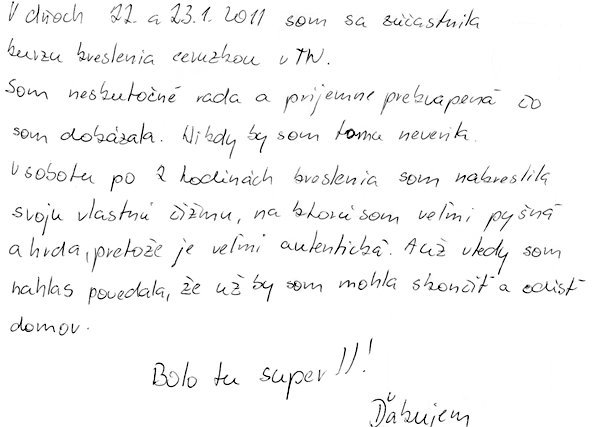 V dňoch 22. a 23.1. 2011 som sa zúčastnila
kurzu kreslenia ceruzkou v TN.
Som neskutočně rada a príjemne prekvapená čo
som dokázala. Nikdy by som tomu neverila.
V sobotu po 2 hodinách kreslenia som nakreslila
svoju vlastnú čižmu, na ktorú som veľmi pyšná
a hrdá, pretože je veľmi autentická. A už vtedy som
nahlas povedala, že už by som mohla skončiť a odísť
domov.
Bolo tu super!!!
Ďakujem